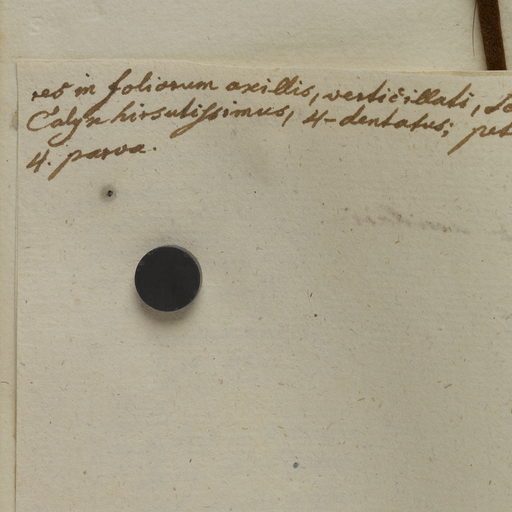 res in foliorum axillis, verticillati, 
Calyx hirsutissimus, 4-dentatus; pet
4. parva.